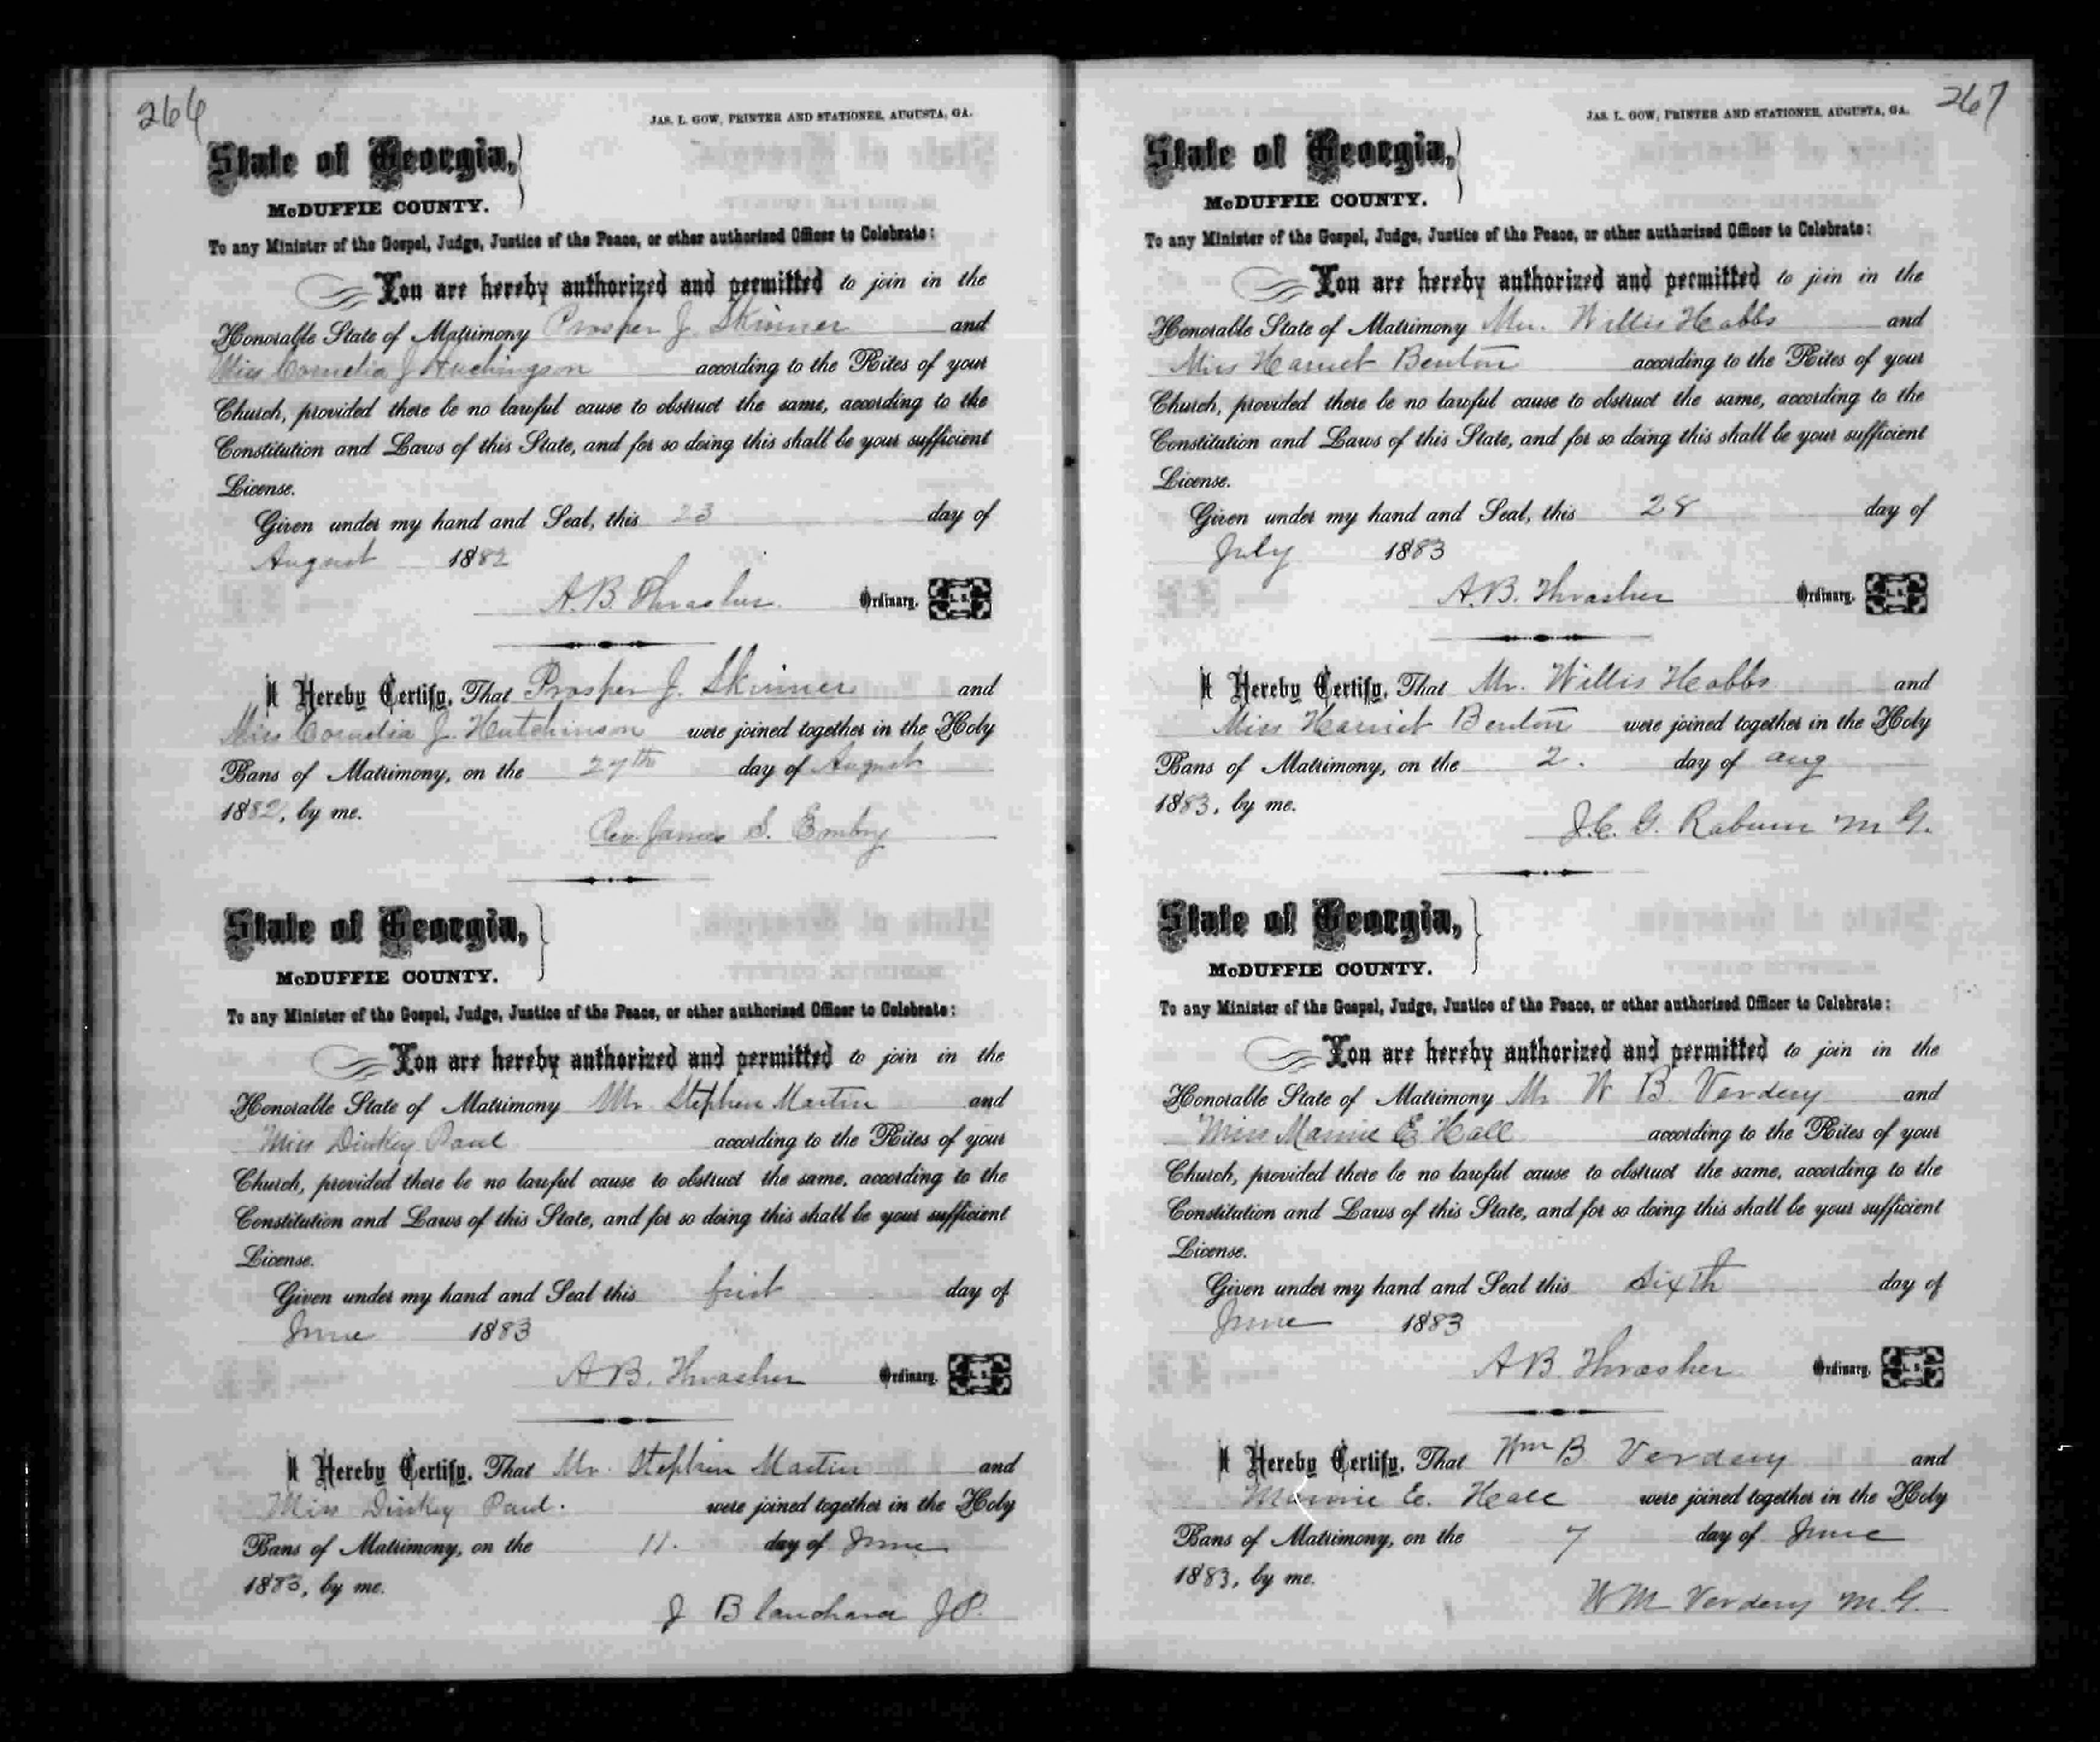 266
JAS. L. GOW, PRINTER AND STATIONER, AUGUSTA, GA.
State of Georgia,
McDUFFIE COUNTY.
To any Minister of the Gospel, Judge, Justice of the Peace, or other authorized Officer to Celebrate:
You are hereby authorized and permitted to join in the
Honorable State of Matrimony Prosper J. Skinner and
Miss Cornelia J Huchingson according to the Rites of your
Church, provided there be no lawful cause to obstruct the same, according to the
Constitution and Laws of this State, and for so doing this shall be your sufficient
License.
Given under my hand and Seal, this 23 day of
August 1882
A.B. Thrasher Ordinary. L. S.
I Hereby Certify, That Prosper J. Skinner and
Miss Cornelia J. Hutchinson were joined together in the Holy
Bans of Matrimony, on the 27th day of August
1882, by me.
Rev. James S. Embry
State of Georgia,
McDUFFIE COUNTY.
To any Minister of the Gospel, Judge, Justice of the Peace, or other authorized Officer to Celebrate:
You are hereby authorized and permitted to join in the
Honorable State of Matrimony Mr. Stephen Martin and
Miss Dinkey Paul according to the Rites of your
Church, provided there be no lawful cause to obstruct the same, according to the
Constitution and Laws of this State, and for so doing this shall be your sufficient
License.
Given under my hand and Seal this first day of
June 1883
A B. Thrasher Ordinary. L. S.
I Hereby Certify, That Mr. Stephen Martin and
Miss Dinkey Paul. were joined together in the Holy
Bans of Matrimony, on the 11. day of June
1883, by me.
J Blanchard J.P.
267
JAS. L. GOW, PRINTER AND STATIONER, AUGUSTA, GA.
State of Georgia,
McDUFFIE COUNTY.
To any Minister of the Gospel, Judge, Justice of the Peace, or other authorized Officer to Celebrate:
You are hereby authorized and permitted to join in the
Honorable State of Matrimony Mr. Willis Hobbs and
Miss Harriet Benton according to the Rites of your
Church, provided there be no lawful cause to obstruct the same, according to the
Constitution and Laws of this State, and for so doing this shall be your sufficient
License.
Given under my hand and Seal, this 28 day of
July 1883
A.B. Thrasher Ordinary. L. S.
I Hereby Certify, That Mr. Willis Hobbs and
Miss Harriet Benton were joined together in the Holy
Bans of Matrimony, on the 2. day of aug
1883, by me.
J.C. G. Rabun M G.
State of Georgia,
McDUFFIE COUNTY.
To any Minister of the Gospel, Judge, Justice of the Peace, or other authorized Officer to Celebrate:
You are hereby authorized and permitted to join in the
Honorable State of Matrimony Mr W B. Verdery and
Miss Mamie E Hall according to the Rites of your
Church, provided there be no lawful cause to obstruct the same, according to the
Constitution and Laws of this State, and for so doing this shall be your sufficient
License.
Given under my hand and Seal this Sixth day of
June 1883
A B. Thrasher Ordinary. L. S.
I Hereby Certify, That Wm B Verdery and
Mamie E. Hall were joined together in the Holy
Bans of Matrimony, on the 7 day of June
1883, by me.
W M Verdery M.G.